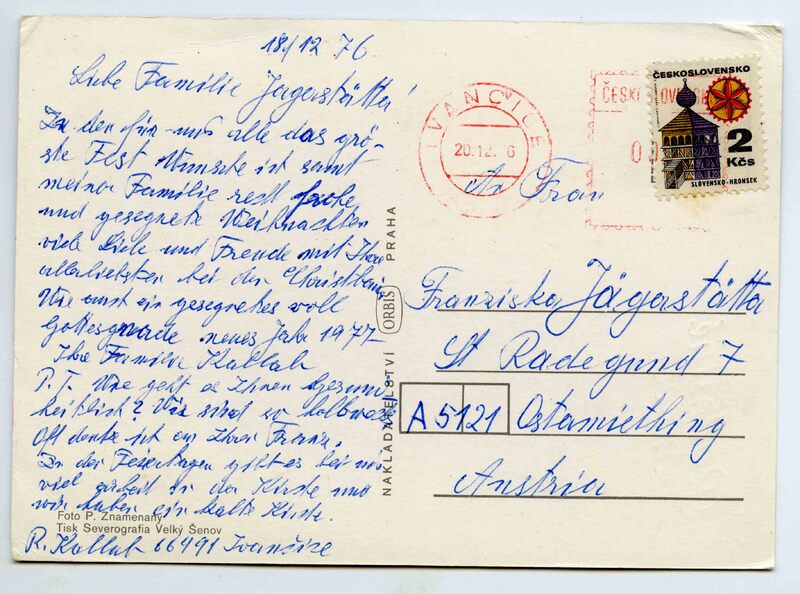 18/12 76
Liebe Familie Jägerstätter!
Zu den für uns alle das grö-
ste Fest Wünschte ich samt
meiner Familie recht frohe
und gesegnete Weihnachten
viel Liebe und Freude mit Ihren
allerliebsten bei den Christbaum
Wie aust ein gesegnetes voll
Gottesgnade neues Jahr 1977-
Ihre Familie Kallab
P.T. Wie geht es Ihnen Gesund-
heitlich? Wir sind so halbwegs
Oft denke ich an Ihren Franz.
In der Feiertagen gibt es bei mir
viel arbeit in der Kirche und
wir haben ein kalte Kirche.
Foto P. Znamenaný
Tisk Severografia Velký Šenov
R. Kallab 66491 Ivančice
NAKLADATELSTVÍ ORBIS PRAHA
IVANČICE
20.12. 6
ČESKOSLOVENSKO
2
Kčs
SLOVENSKO-HRONSEK
An Frau
Franziska Jägerstätter
St Radegund 7
A5121 Ostermiething
Austria